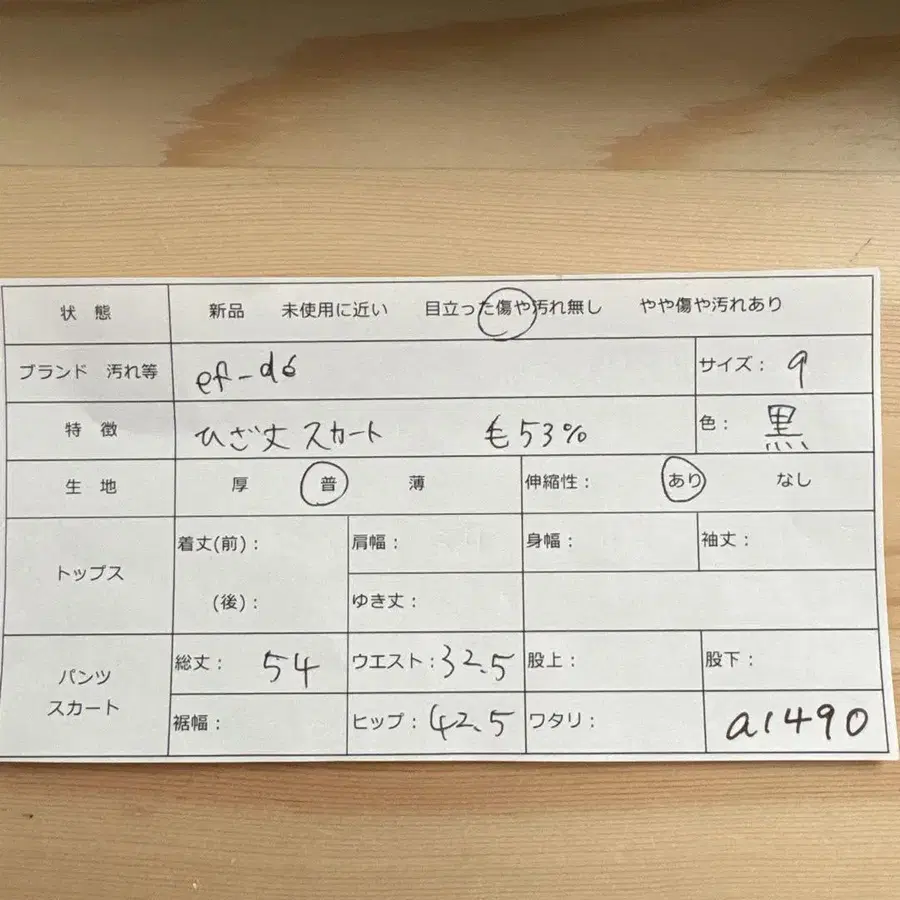 状 態 新品 未使用に近い 目立った傷や汚れ無し やや傷や汚れあり
ブランド 汚れ等 ef-dé サイズ： 9
特 徴 ひざ丈スカート 毛53% 色： 黒
生 地 厚 普 薄 伸縮性： あり なし
トップス 着丈(前)： 肩幅： 身幅： 袖丈：
(後)： ゆき丈：
パンツ スカート 総丈： 54 ウエスト：32.5 股上： 股下：
裾幅： ヒップ：42.5 ワタリ： a1490